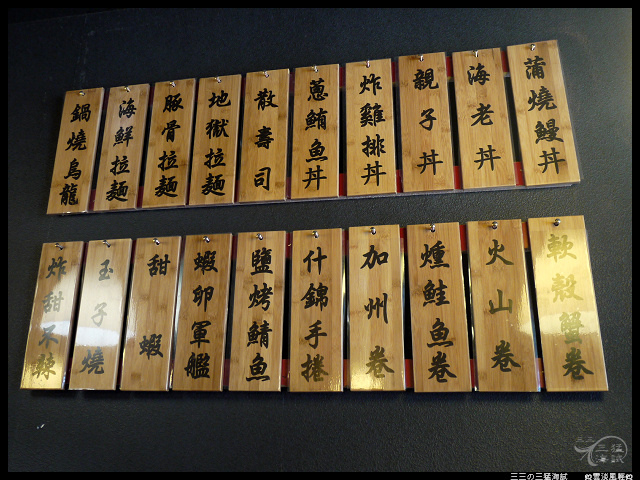 蒲燒鰻丼
海老丼
親子丼
炸雞排丼
蔥鮪魚丼
散壽司
地獄拉麵
豚骨拉麵
海鮮拉麵
鍋燒烏龍
軟殼蟹卷
火山卷
燻鮭魚卷
加州卷
什錦手捲
鹽烤鯖魚
蝦卵軍艦
甜蝦
玉子燒
炸甜不辣
三三の三猛海試